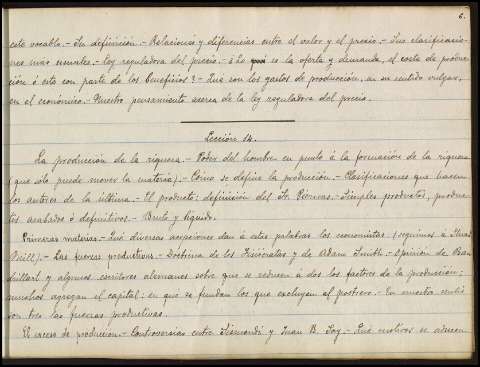 6.
este vocablo.- Su definición.- Relaciones y diferencias entre el valor y el precio.- Sus clasificacio-
nes más usuales.- Ley reguladora del precio.- ¿Lo es la oferta y demanda, el coste de produc-
ción ó este con parte de los beneficios?- Que son los gastos de producción, en su sentido vulgar,
en el económico.- Nuestro pensamiento acerca de la ley reguladora del precio.
Lección 14.
La producción de la riqueza.- Poder del hombre en punto á la formación de la riqueza
(que sólo puede mover la materia).- Cómo se define la producción.- Clasificaciones que hacen
los autores de la última.- El producto; definición del Sr. Piernas.- Simples productos, produc-
tos acabados ó definitivos.- Bruto y líquido.
Primeras materias.- Qué diversas acepciones dan á estas palabras los economistas (seguimos á Stuar
Mill).- Las fuerzas productivas.- Doctrina de los Fisiócratas y de Adam Smith.- Opinión de Bau
drillart y algunos escritores alemanes sobre que se reducen á dos los factores de la producción;
muchos agregan el capital; en que se fundan los que excluyen al postrero.- En nuestro sentir
son tres las fuerzas productivas.
El exceso de producción.- Controversias entre Sismondi y Juan B. Say.- Qué motivos se aducen